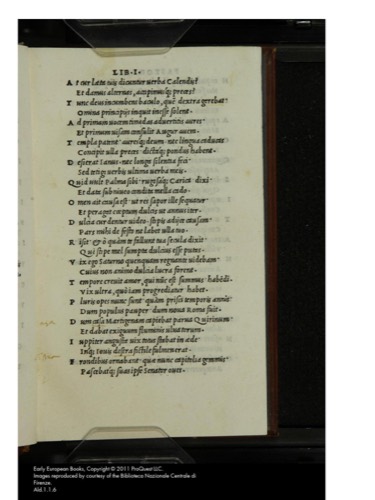 LIB·I·
A t cur læta tuis dicuntur uerba Calendis?
Et damus alternas, accipimusq; preces?
T unc deus incumbens baculo, quē dextra gerebat
Omina principijs inquit inesse solent.
A d primam uocem timidas aduertitis aures
Et primum uisam consulit Augur auem.
T empla patent auresq; deum, nec lingua caducas
Concipit ulla preces, dictaq; pondus habent.
D esierat Ianus, nec longa silentia feci
Sed tetigi uerbis ultima uerba meis.
Q uid uult Palma sibi, rugosaq; Carica? dixi
Et data sub niueo condita mella cado
O men ait causa est, ut res sapor ille sequatur
Et peragat cœptum dulcis ut annus iter.
D ulcia cur dentur uideo, stipis adijce causam
Pars mihi de festo ne labet ulla tuo.
R isit, et ò quàm te fallunt tua secula dixit
Qui stipe mel sumpta dulcius esse putes.
V ix ego Saturno quenquam regnante uidebam
Cuius non animo dulcia lucra forent.
T empore creuit amor, qui nūc est summus habēdi
Vix ultra, quò iam progrediatur habet.
P luris opes nunc sunt, quàm prisci temporis annis
Dum populus pauper, dum noua Roma fuit.
D um casa Martigenam capiebat parua Quirinum
Et dabat exiguum fluminis ulua torum.
I uppiter angusta uix totus stabat in æde
Inq; Iouis dextra fictile fulmen erat.
F rondibus ornabant, quæ nunc capitolia gemmis
Pascebatq; suas ipse Senator oues.
Early European Books, Copyright © 2011 ProQuest LLC.
Images reproduced by courtesy of the Biblioteca Nazionale Centrale di
Firenze.
Ald.1.1.6